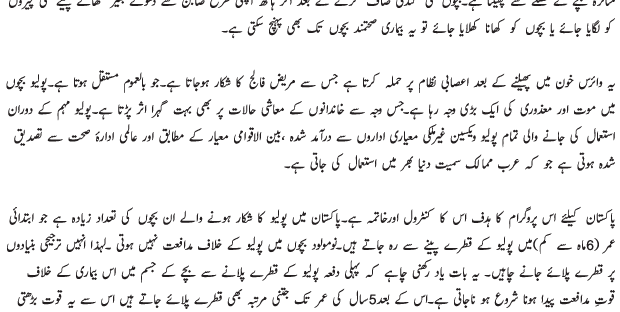 کو لگایا جائے یا بچوں کو کھانا کھلایا جائے تو یہ بیماری صحتمند بچوں تک بھی پہنچ سکتی ہے۔
یہ وائرس خون میں پھیلنے کے بعد اعصابی نظام پر حملہ کرتا ہے جس سے مریض فالج کا شکار ہوجاتا ہے۔جو بالعموم مستقل ہوتا ہے۔پولیو بچوں
میں موت اور معذوری کی ایک بڑی وجہ رہا ہے۔جس وجہ سے خاندانوں کے معاشی حالات پر بھی بہت گہرا اثر پڑتا ہے۔پولیو مہم کے دوران
استعمال کی جانے والی تمام پولیو ویکسین غیرملکی معیاری اداروں سے درآمد شدہ ،بین الاقوامی معیار کے مطابق اور عالمی ادارۂ صحت سے تصدیق
شدہ ہوتی ہے جو کہ عرب ممالک سمیت دنیا بھر میں استعمال کی جاتی ہے۔
پاکستان کیلئے اس پروگرام کا ہدف اس کا کنٹرول اورخاتمہ ہے۔پاکستان میں پولیو کا شکار ہونے والے ان بچوں کی تعداد زیادہ ہے جو ابتدائی
عمر (6ماہ سے کم)میں پولیو کے قطرے پینے سے رہ جاتے ہیں۔نومولود بچوں میں پولیو کے خلاف مدافعت نہیں ہوتی ۔لہذا انہیں ترجیحی بنیادوں
پر قطرے پلائے جانے چاہیں۔ یہ بات یاد رکھنی چاہے کہ پہلی دفعہ پولیو کے قطرے پلانے سے بچے کے جسم میں اس بیماری کے خلاف
قوتِ مدافعت پیدا ہونا شروع ہو ناجاتی ہے۔اس کے بعد5سال کی عمر تک جتنی مرتبہ بھی قطرے پلائے جاتے ہیں اس سے یہ قوت بڑھتی